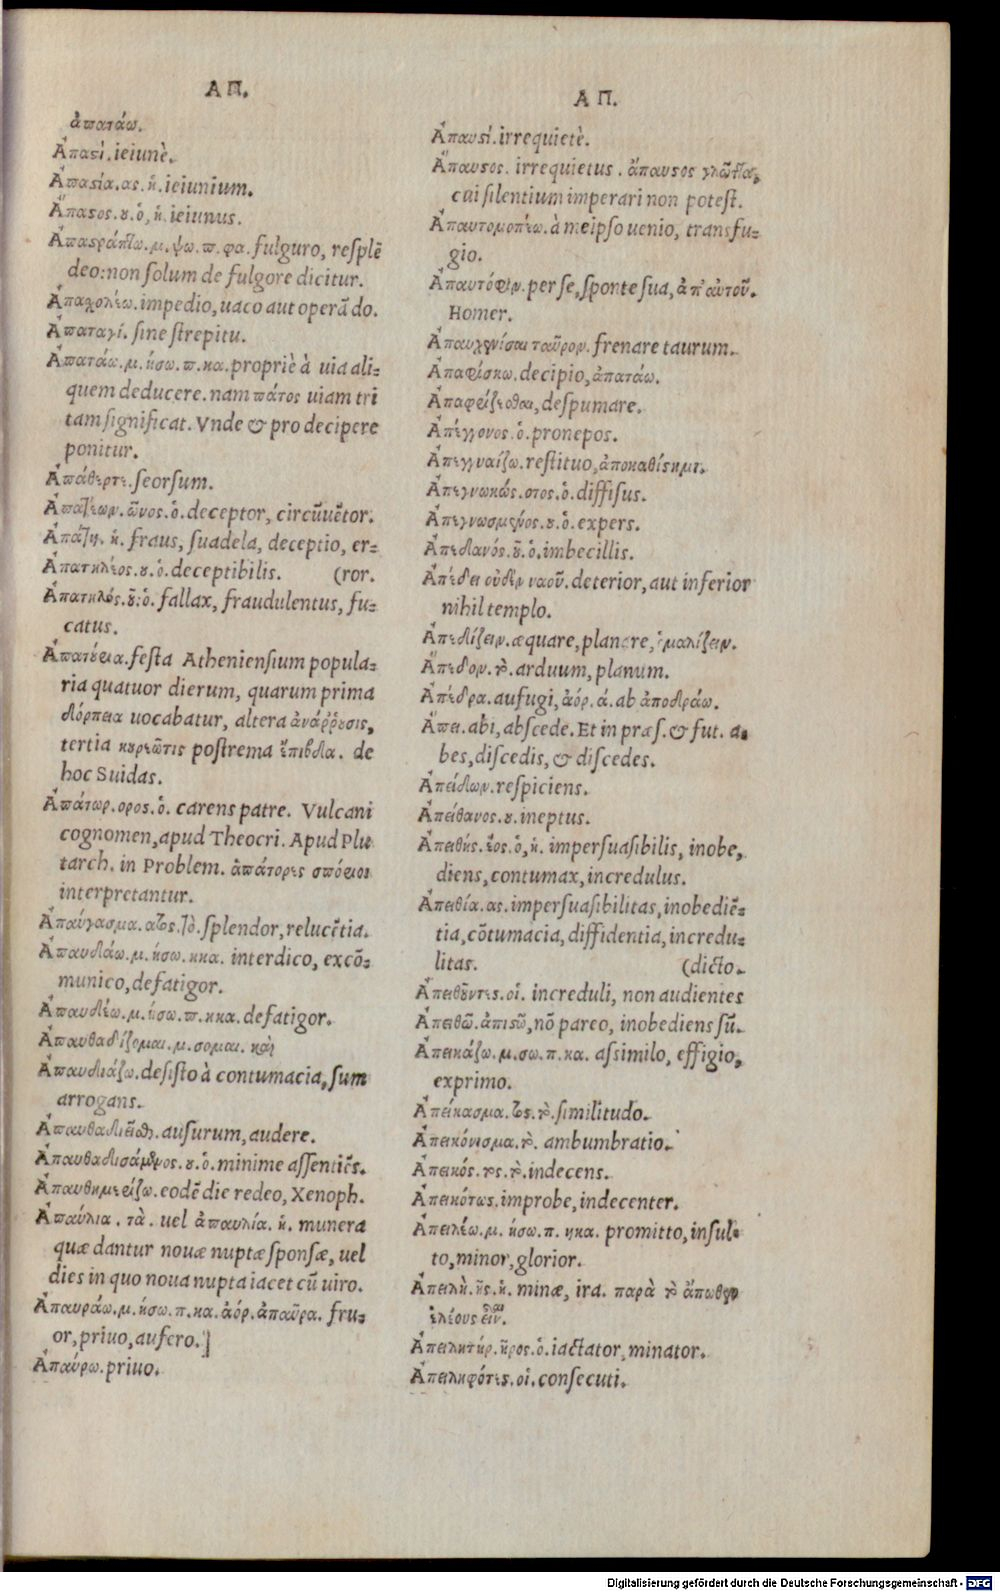 ΑΠ.
ἀπατάω.
Ἀπαστί. ieiunè.
Ἀπαστία. ας. ἡ. ieiunium.
Ἄπαστος. ου. ὁ, ἡ. ieiunus.
Ἀπαστράπτω. μ. ψω. π. φα. fulguro, resplē
deo: non solum de fulgore dicitur.
Ἀπασχολέω. impedio, uaco aut operā do.
Ἀπαταγί. sine strepitu.
Ἀπατάω. μ. ήσω. π. κα. propriè à uia ali-
quem deducere. nam πάτος uiam tri
tam significat. Vnde & pro decipere
ponitur.
Ἀπάθερτε. seorsum.
Ἀπατεών. ῶνος. ὁ. deceptor, circūuētor.
Ἀπάτη. ἡ. fraus, suadela, deceptio, er-
Ἀπατηλέος. ου. ὁ. deceptibilis. (ror.
Ἀπατηλός. οῦ. ὁ. fallax, fraudulentus, fu-
catus.
Ἀπατούρια. festa Atheniensium popula-
ria quatuor dierum, quarum prima
δόρπεια uocabatur, altera ἀνάῤῥουσις,
tertia κουρεῶτις postrema ἔπιβδα. de
hoc Suidas.
Ἀπάτωρ. ορος. ὁ. carens patre. Vulcani
cognomen, apud Theocri. Apud Plu
tarch. in Problem. ἀπάτορες σπόριοι
interpretantur.
Ἀπαύγασμα. ατος. τὸ. splendor, relucētia.
Ἀπαυδάω. μ. ήσω. ηκα. interdico, excō-
munico, defatigor.
Ἀπαυδέω. μ. ήσω. π. ηκα. defatigor.
Ἀπαυθαδίζομαι. μ. σομαι. καὶ
Ἀπαυδιάζω. desisto à contumacia, sum
arrogans.
Ἀπαυθαδιεῖσθ. ausurum, audere.
Ἀπαυθαδισάμενος. ου. ὁ. minime assentiēs.
Ἀπαυθημερίζω. eodē die redeo, Xenoph.
Ἀπαύλια. τὰ. uel ἀπαυλία. ἡ. munera
quæ dantur nouæ nuptæ sponsæ, uel
dies in quo noua nupta iacet cū uiro.
Ἀπαυράω. μ. ήσω. π. κα. ἀόρ. ἀπαῦρα. fru-
or, priuo, aufero.]
Ἀπαύρω. priuo.
ΑΠ.
Ἀπαυστί. irrequietè.
Ἄπαυστος. irrequietus. ἄπαυστος γλῶττα,
cui silentium imperari non potest.
Ἀπαυτομολέω. à meipso uenio, transfu-
gio.
Ἀπαυτόφιν. per se, sponte sua, ἀπ' αὐτοῦ.
Homer.
Ἀπαυχενίσαι ταῦρον. frenare taurum.
Ἀπαφίσκω. decipio, ἀπατάω.
Ἀπαφρίζεσθαι, despumare.
Ἀπέγγονος. ὁ. pronepos.
Ἀπεγγυαίζω. restituo, ἀποκαθίστημι.
Ἀπεγνωκώς. οτος. ὁ. diffisus.
Ἀπεγνωσμένος. ου. ὁ. expers.
Ἀπεδανός. οῦ. ὁ. imbecillis.
Ἀπέδει οὐδὲν ναοῦ. deterior, aut inferior
nihil templo.
Ἀπεδίζειν. æquare, planare, ὁμαλίζειν.
Ἄπεδον. τὸ. arduum, planum.
Ἀπέδρα. aufugi, ἀόρ. ά. ab ἀποδράω.
Ἄπει. abi, abscede. Et in præs. & fut. a-
bes, discedis, & discedes.
Ἀπείδων. respiciens.
Ἀπείθανος. ου. ineptus.
Ἀπειθής. έος. ὁ, ἡ. impersuasibilis, inobe-
diens, contumax, incredulus.
Ἀπειθία. ας. impersuasibilitas, inobediē-
tia, cōtumacia, diffidentia, incredu-
litas. (dicto.
Ἀπειθοῦντες. οἱ. increduli, non audientes
Ἀπειθῶ. ἀπιστῶ, nō pareo, inobediens sū.
Ἀπεικάζω. μ. σω. π. κα. assimilo, effigio,
exprimo.
Ἀπείκασμα. τος. τὸ. similitudo.
Ἀπεικόνισμα. τὸ. ambumbratio.
Ἀπεικός. τος. τὸ. indecens.
Ἀπεικότως. improbe, indecenter.
Ἀπειλέω. μ. ήσω. π. ηκα. promitto, insul-
to, minor, glorior.
Ἀπειλή. ῆς. ἡ. minæ, ira. παρὰ τὸ ἄπωθεν
ἐλέους εἶναι.
Ἀπειλητήρ. ῆρος. ὁ. iactator, minator.
Ἀπειληφότες. οἱ. consecuti.
Digitalisierung gefördert durch die Deutsche Forschungsgemeinschaft - DFG